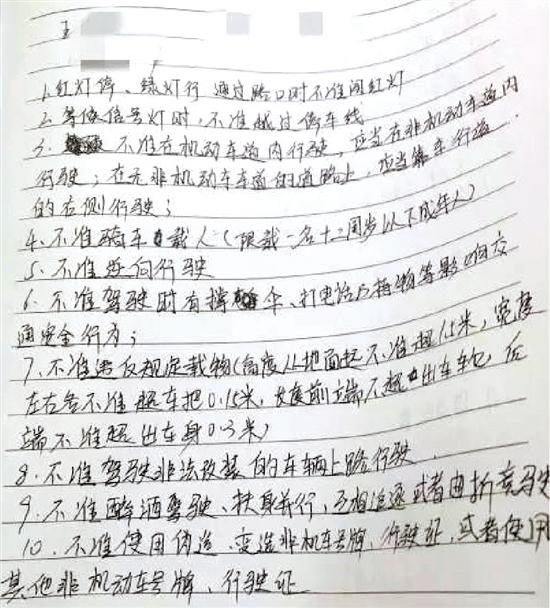 1.红灯停、绿灯行 通过路口时不准闯红灯
2.等候信号灯时,不准越过停车线
3. 不准在机动车道内行驶,应当在非机动车道内
行驶;在无非机动车车道的道路上,应当靠车行道
的右侧行驶;
4、不准骑车载人(限载一名十二周岁以下成年人)
5、不准逆向行驶
6、不准驾驶时有撑伞、打电话及持物等影响交
通安全行为;
7、不准违反规定载物(高度从地面起不准超1.5米,宽度
左右各不准超车把0.15米,长度前端不超出车轮,后
端不准超出车身0.3米)
8、不准驾驶非法改装的车辆上路行驶
9、不准醉酒驾驶、扶身并行、互相追逐或者曲折竞驶
10、不准使用伪造、变造非机车号牌、行驶证,或者使用
其他非机动车号牌、行驶证